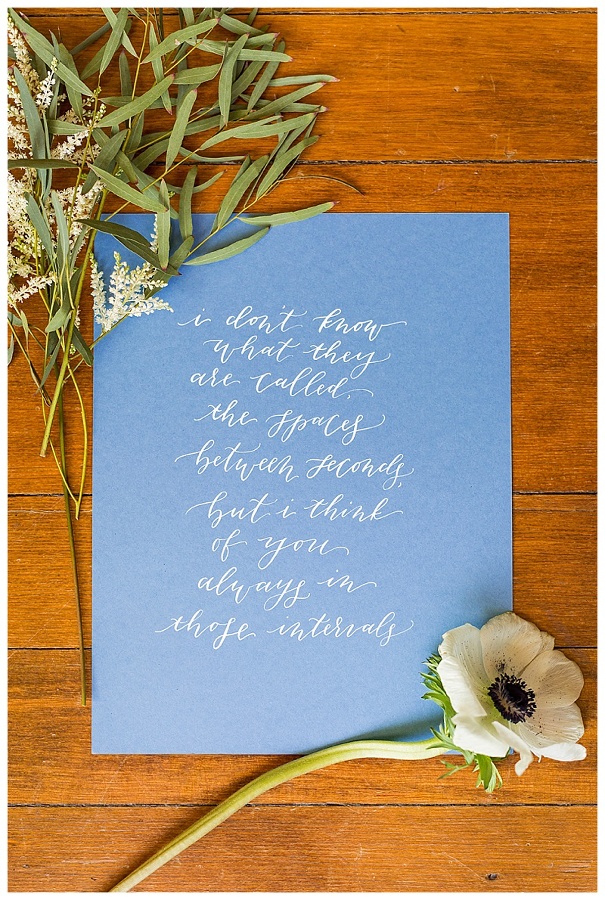 i don't know
what they
are called,
the spaces
between seconds,
but i think
of you
always in
those intervals